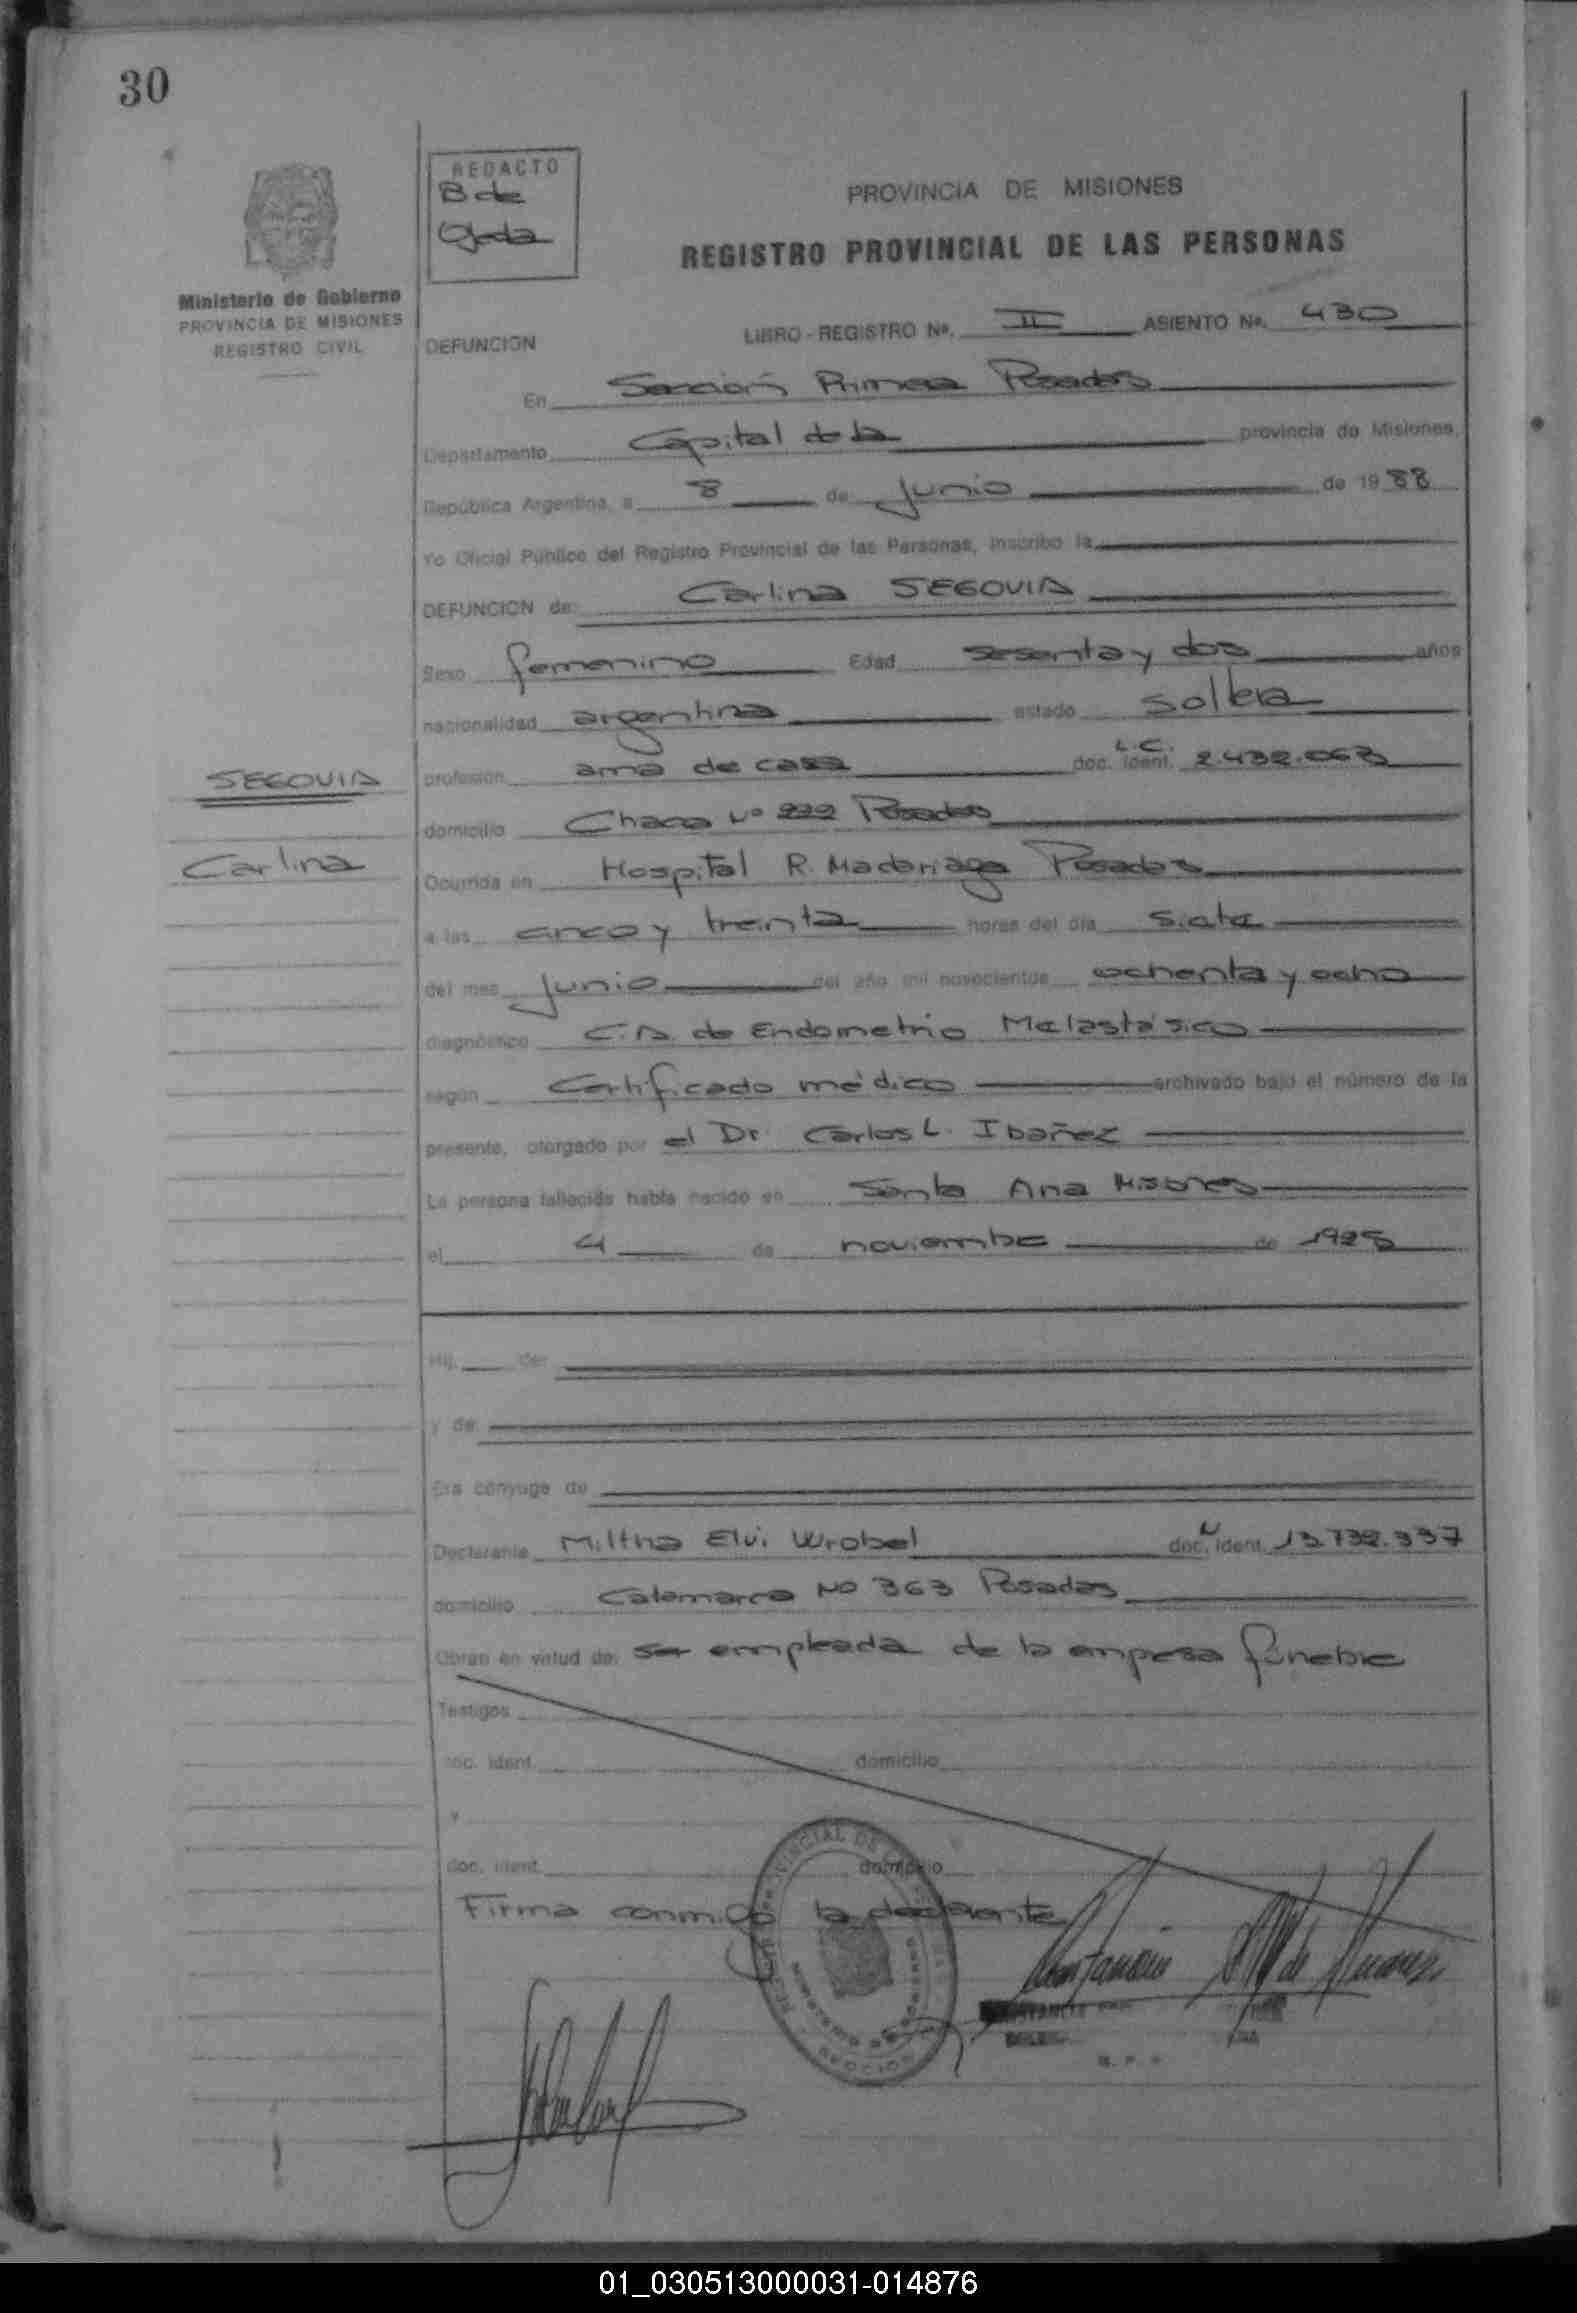 30
REDACTO
B de
Ojeda
PROVINCIA DE MISIONES
REGISTRO PROVINCIAL DE LAS PERSONAS
Ministerio de Gobierno
PROVINCIA DE MISIONES
REGISTRO CIVIL
DEFUNCION
LIBRO - REGISTRO Nº. II ASIENTO Nº. 430
En Sección Primera Posadas
Departamento Capital de la provincia de Misiones,
República Argentina, a 8 de Junio de 1988
Yo Oficial Público del Registro Provincial de las Personas, inscribo la
DEFUNCION de: Carlina SEGOVIA
Sexo femenino Edad sesenta y dos años
nacionalidad argentina estado soltera
SEGOVIA
Carlina
profesión ama de casa doc. ident. L.C. 2.432.063
domicilio Chacra Nº 222 Posadas
Ocurrida en Hospital R. Madariaga Posadas
a las cinco y treinta horas del día siete
del mes Junio del año mil novecientos ochenta y ocho
diagnóstico C.A. de Endometrio Metastásico
según Certificado médico archivado bajo el número de la
presente, otorgado por el Dr. Carlos L. Ibañez
La persona fallecida había nacido en Santa Ana Misiones
el 4 de noviembre de 1925
Hij de:
y de:
Era cónyuge de
Declarante Miltha Elvi Wrobel doc. ident. 13.732.337
domicilio Catamarca Nº 363 Posadas
Obran en virtud de: ser empleada de la empresa fúnebre
Testigos
doc. ident. domicilio
y
doc. ident. domicilio
Firma conmigo la declarante
01_030513000031-014876